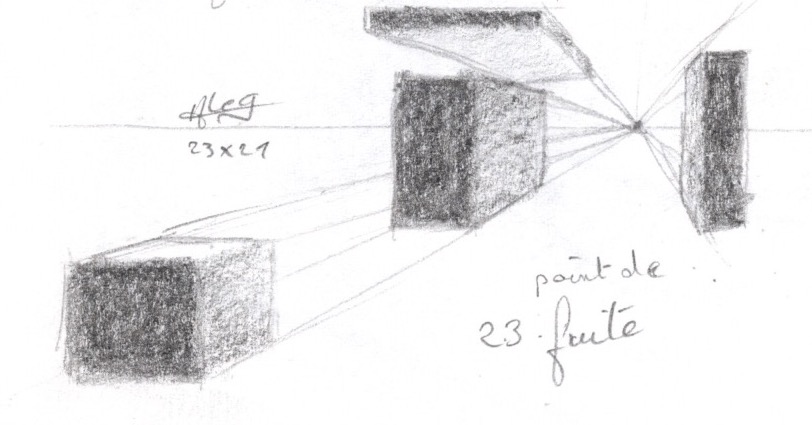 23x21
point de
23. fuite